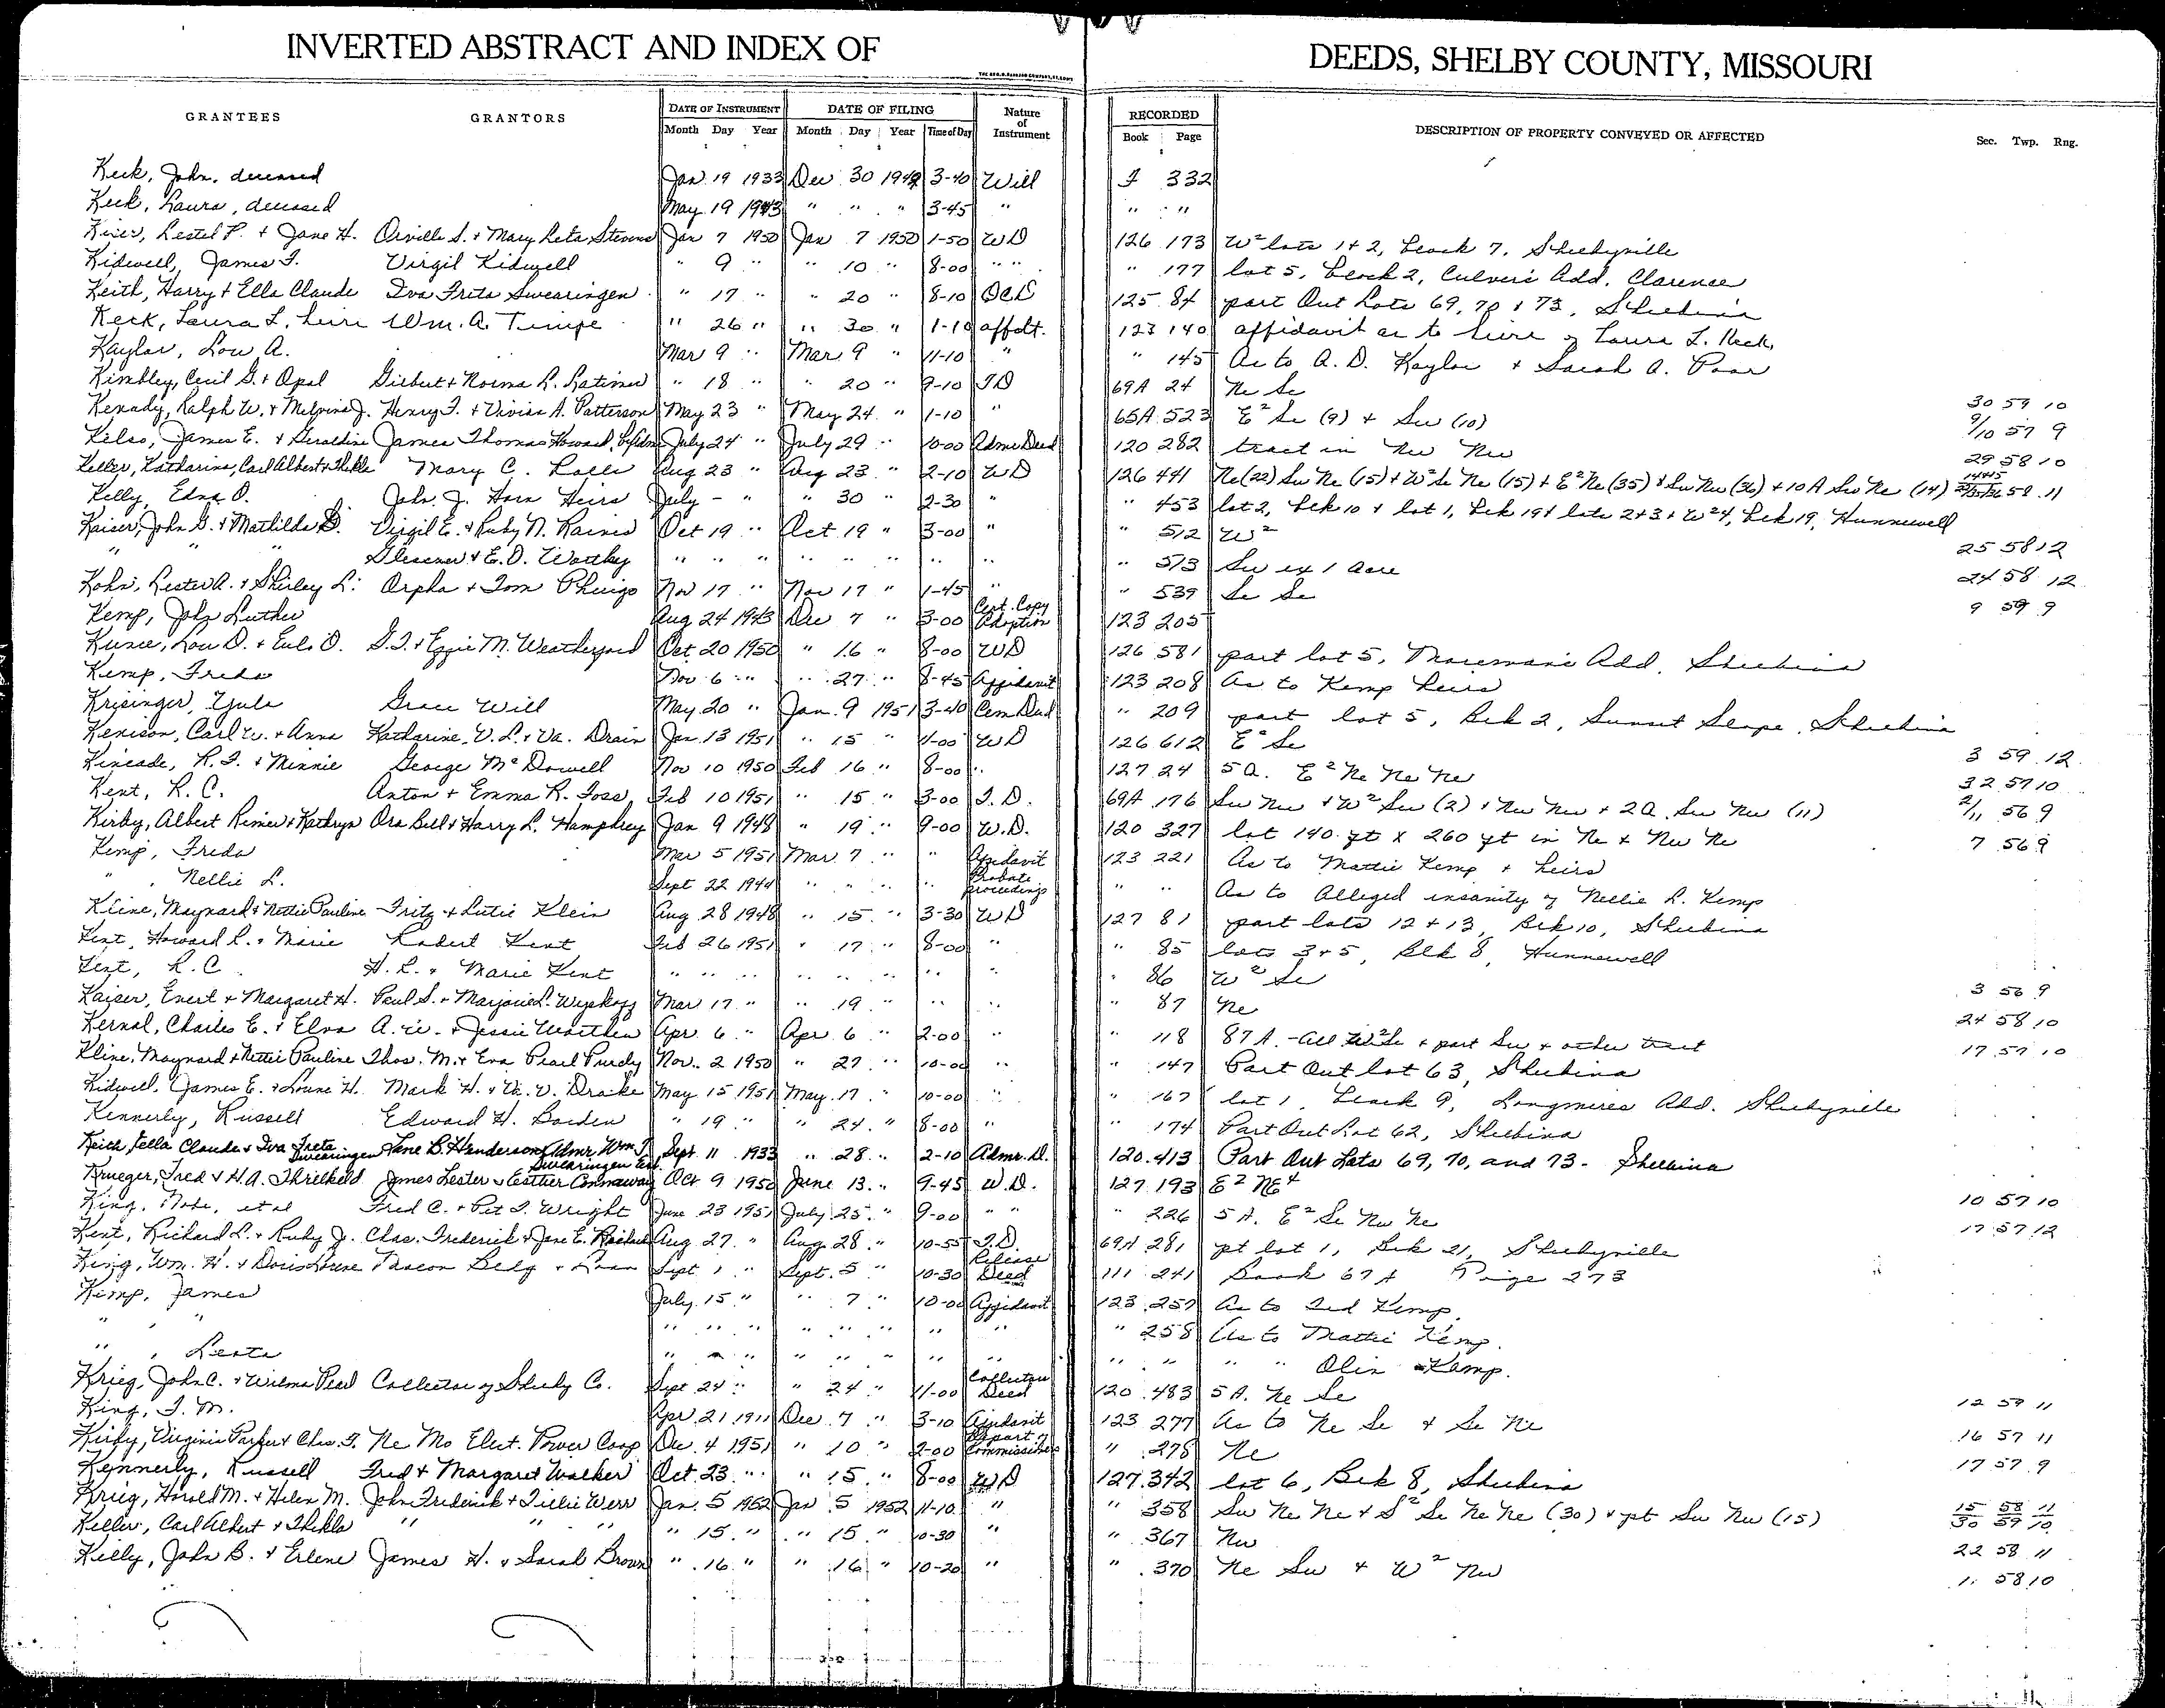 INVERTED ABSTRACT AND INDEX OF DEEDS, SHELBY COUNTY, MISSOURI
GRANTEES GRANTORS DATE OF INSTRUMENT DATE OF FILING Nature of Instrument RECORDED DESCRIPTION OF PROPERTY CONVEYED OR AFFECTED Sec. Twp. Rng.
Month Day Year Month Day Year Time of Day Book Page
Keck, John, deceased Jan 19 1933 Dec 30 1949 3-40 Will I 332
Keck, Laura, deceased May 19 1943 " " " 3-45 " " "
Lestel P. + Jane H. Orville S. + Mary Leta Stevens Jan 7 1950 Jan 7 1950 1-50 WD 126 173 W² lots 1+2, block 7, Shelbyville
Kidwell, James F. Virgil Kidwell " 9 " " 10 " 8-00 " " " 177 lot 5, block 2, Culver's Add. Clarence
Keith, Harry + Ella Claude Iva Freta Swearingen " 17 " " 20 " 8-10 QCD 125 84 part Out Lots 69, 70 + 73, Shelbina
Keck, Laura L. heirs Wm. A. Timpe " 26 " " 30 " 1-10 affdt. 123 140 affidavit as to heirs of Laura L. Keck
Kaylor, Lou A. Mar 9 " Mar 9 " 11-10 " " 145 As to A. D. Kaylor + Sarah A. Poor
Kimbley, Cecil G. + Opal Gilbert + Norma L. Latimer " 18 " " 20 " 9-10 TD 69A 24 Ne Se 30 59 10
Kenady, Ralph W. + Melvine J. Henry F. + Vivian A. Patterson May 23 " May 24 " 1-10 " 65A 523 E² Se (9) + Sw (10) 9/10 57 9
Kelso, James E. + Geraldine James Thomas Howard, by Adm July 24 " July 29 " 10-00 Admr Deed 120 282 tract in Nw Nw 29 58 10
Keller, Katharine, Carl Albert + Thekla Mary C. Lolli Aug 23 " Aug 23 " 2-10 WD 126 441 Ne (22) Sw Ne (15) + W² Se Ne (15) + E² Ne (35) + Sw Nw (36) + 10 A Sw Ne (14) 58 11
Kelly, Edna O. John J. Horn Heirs July - " " 30 " 2-30 " " 453 lot 2, blk 10 + lot 1, blk 19 + lots 2+3 + W² 4, blk 19, Hunnewell
Kaiser, John G. + Mathilda D. Virgil E. + Ruby N. Raines Oct 19 " Oct 19 " 3-00 " " 512 W² 25 58 12
" " " Gleasner + E. O. Worthy " " " " " " " " " 513 Sw ex 1 acre 24 58 12
Kohn, Lester A. + Shirley L. Orpha + Tom Phinigo Nov 17 " Nov 17 " 1-45 " " 539 Se Se 9 59 9
Kemp, John Luther Aug 24 1943 Dec 7 " 3-00 Cert. Copy Adoption 123 205
Lou D. + Eula O. G. T. + Eppie M. Weatherford Oct. 20 1950 " 16 " 8-00 WD 126 581 part lot 5, Add. Shelbina
Kemp, Freda Nov 6 " " 27 " 8-45 Affidavit 123 208 As to Kemp heirs
Krisinger, Zula Grace Will May 20 " Jan. 9 1951 3-40 Cem Deed " 209 part lot 5, Blk 2, Sunset Slope, Shelbina
Kenison, Carl W. + Anna Katharine, V. L. + Va. Drain Jan 13 1951 " 15 " 11-00 WD 126 612 E² Se 3 59 12
Kincade, R. F. + Minnie George McDowell Nov 10 1950 Feb 16 " 8-00 " 127 24 5 A. E² Ne Ne Ne 32 57 10
Kent, R. C. Anton + Emma R. Foss Feb 10 1951 " 15 " 3-00 T. D. 69A 176 Sw Nw + W² Sw (2) + Nw Nw + 2 A. Sw Nw (11) 2/11 56 9
Kirby, Albert Reiner + Kathryn Ora Bell + Harry L. Humphrey Jan 9 1948 " 19 " 9-00 W.D. 120 327 lot 140 ft x 260 ft in Ne + Nw Ne 7 56 9
Kemp, Freda Mar 5 1951 Mar. 7 " " Affidavit 123 221 As to Mattie Kemp + heirs
" , Nellie L. Sept 22 1944 " " " " Probate proceedings " " As to Alleged insanity of Nellie L. Kemp
Kline, Maynard + Nettie Pauline Fritz + Lutie Klein Aug 28 1948 " 15 " 3-30 WD 127 81 part lots 12 + 13, Blk 10, Shelbina
Kent, Howard L. + Marie Robert Kent Feb 26 1951 " 17 " 8-00 " " 85 lots 3+5, Blk 8, Hunnewell
Kent, R. C. H. L. + Marie Kent " " " " " " " " " 86 W² Se 3 56 9
Kaiser, Evert + Margaret H. Paul S. + Marjorie L. Wyckoff Mar 17 " " 19 " " " " 87 Ne 24 58 10
Kernal, Charles E. + Elva A. W. + Jessie Worthen Apr. 6 " Apr 6 " 2-00 " " 118 87 A. - all W² Se + part Sw + other tract 17 57 10
Kline, Maynard + Nettie Pauline Thos. M. + Eva Pearl Purdy Nov. 2 1950 " 27 " 10-00 " " 147 Part Out lot 63, Shelbina
Kidwell, James E. + Louise H. Mark H. + Va. V. Drake May 15 1951 May 17 " 10-00 " " 167 lot 1, block 9, Longmires Add. Shelbyville
Kennerly, Russell Edward H. Borden " 19 " " 24 " 8-00 " " 174 Part Out Lot 62, Shelbina
Keith, Ella Claude + Iva Freta Swearingen Jane B. Henderson, Admr. Wm T. Swearingen Est. Sept 11 1933 " 28 " 2-10 Admr. D. 120 413 Part Out Lots 69, 70, and 73 - Shelbina
Krueger, Fred + H.A. Threlkeld James Lester + Esther Connaway Oct 9 1950 June 13 " 9-45 W.D. 127 193 E² NE⁴ 10 57 10
King, Nobe, et al Fred C. + Pet T. Wright June 23 1951 July 25 " 9-00 " " " 226 5 A. E² Se Nw Ne 17 57 12
Kent, Richard L. + Ruby J. Chas. Frederick + Jane E. Aug 27 " Aug 28 " 10-55 T.D. 69A 281 pt lot 1, Blk 21, Shelbyville
King, Wm. H. + Doris Louise Macon Bldg + Loan Sept 1 " Sept. 5 " 10-30 Release Deed 111 241 Book 67A Page 273
Kemp, James July 15 " " 7 " 10-00 Affidavit 123 257 As to Ted Kemp
" " " " " " " " " " " 258 As to Mattie Kemp.
" , Leota " " " " " " " " " " " " Olin Kemp.
Krieg, John C. + Wilma Pearl Collector of Shelby Co. Sept 24 " " 24 " 11-00 Collectors Deed 120 483 5 A. Ne Se 12 59 11
King, T. M. Apr. 21 1911 Dec. 7 " 3-10 Affidavit 123 277 As to Ne Se + Se Ne 16 57 11
Kirby, Virginia Parker + Chas. T. Ne Mo Elect. Power Coop Dec. 4 1951 " 10 " 2-00 Report of Commissioners " 278 Ne 17 57 9
Kennerly, Russell Fred + Margaret Walker Oct. 23 " " 15 " 8-00 WD 127 342 lot 6, Blk 8, Shelbina
Krieg, Harold M. + Helen M. John Frederick + Tillie Werr Jan. 5 1952 Jan 5 1952 11-10 " " 358 Sw Ne Ne + S² Se Ne Ne (30) + pt Sw Nw (15) 15 58 11 30 59 10
Keller, Carl Albert + Thekla " " " " 15 " " 15 " 10-30 " " 367 Nw 22 58 11
Kelly, John B. + Erlene James H. + Sarah Brown " 16 " " 16 " 10-20 " " 370 Ne Sw + W² Nw 1 58 10